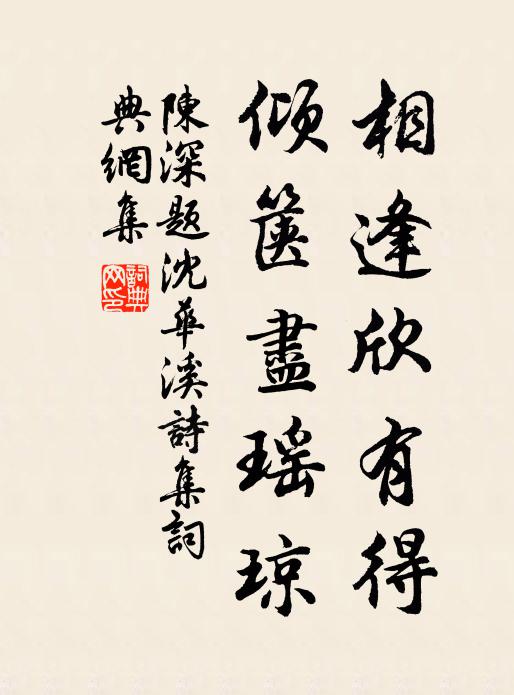 相逢欣有得
傾篋盡瑶琼
陳深題沈華溪詩集詞
典網集
詞典
网印